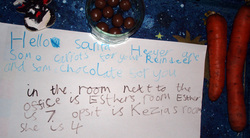 Hello santa Heeyer ar's
Som carrots for your Reindeer
and som chocolate for you
in the room next to the
office is Esthers room Esther
is 7, opsit is Kezia's room
she is 4